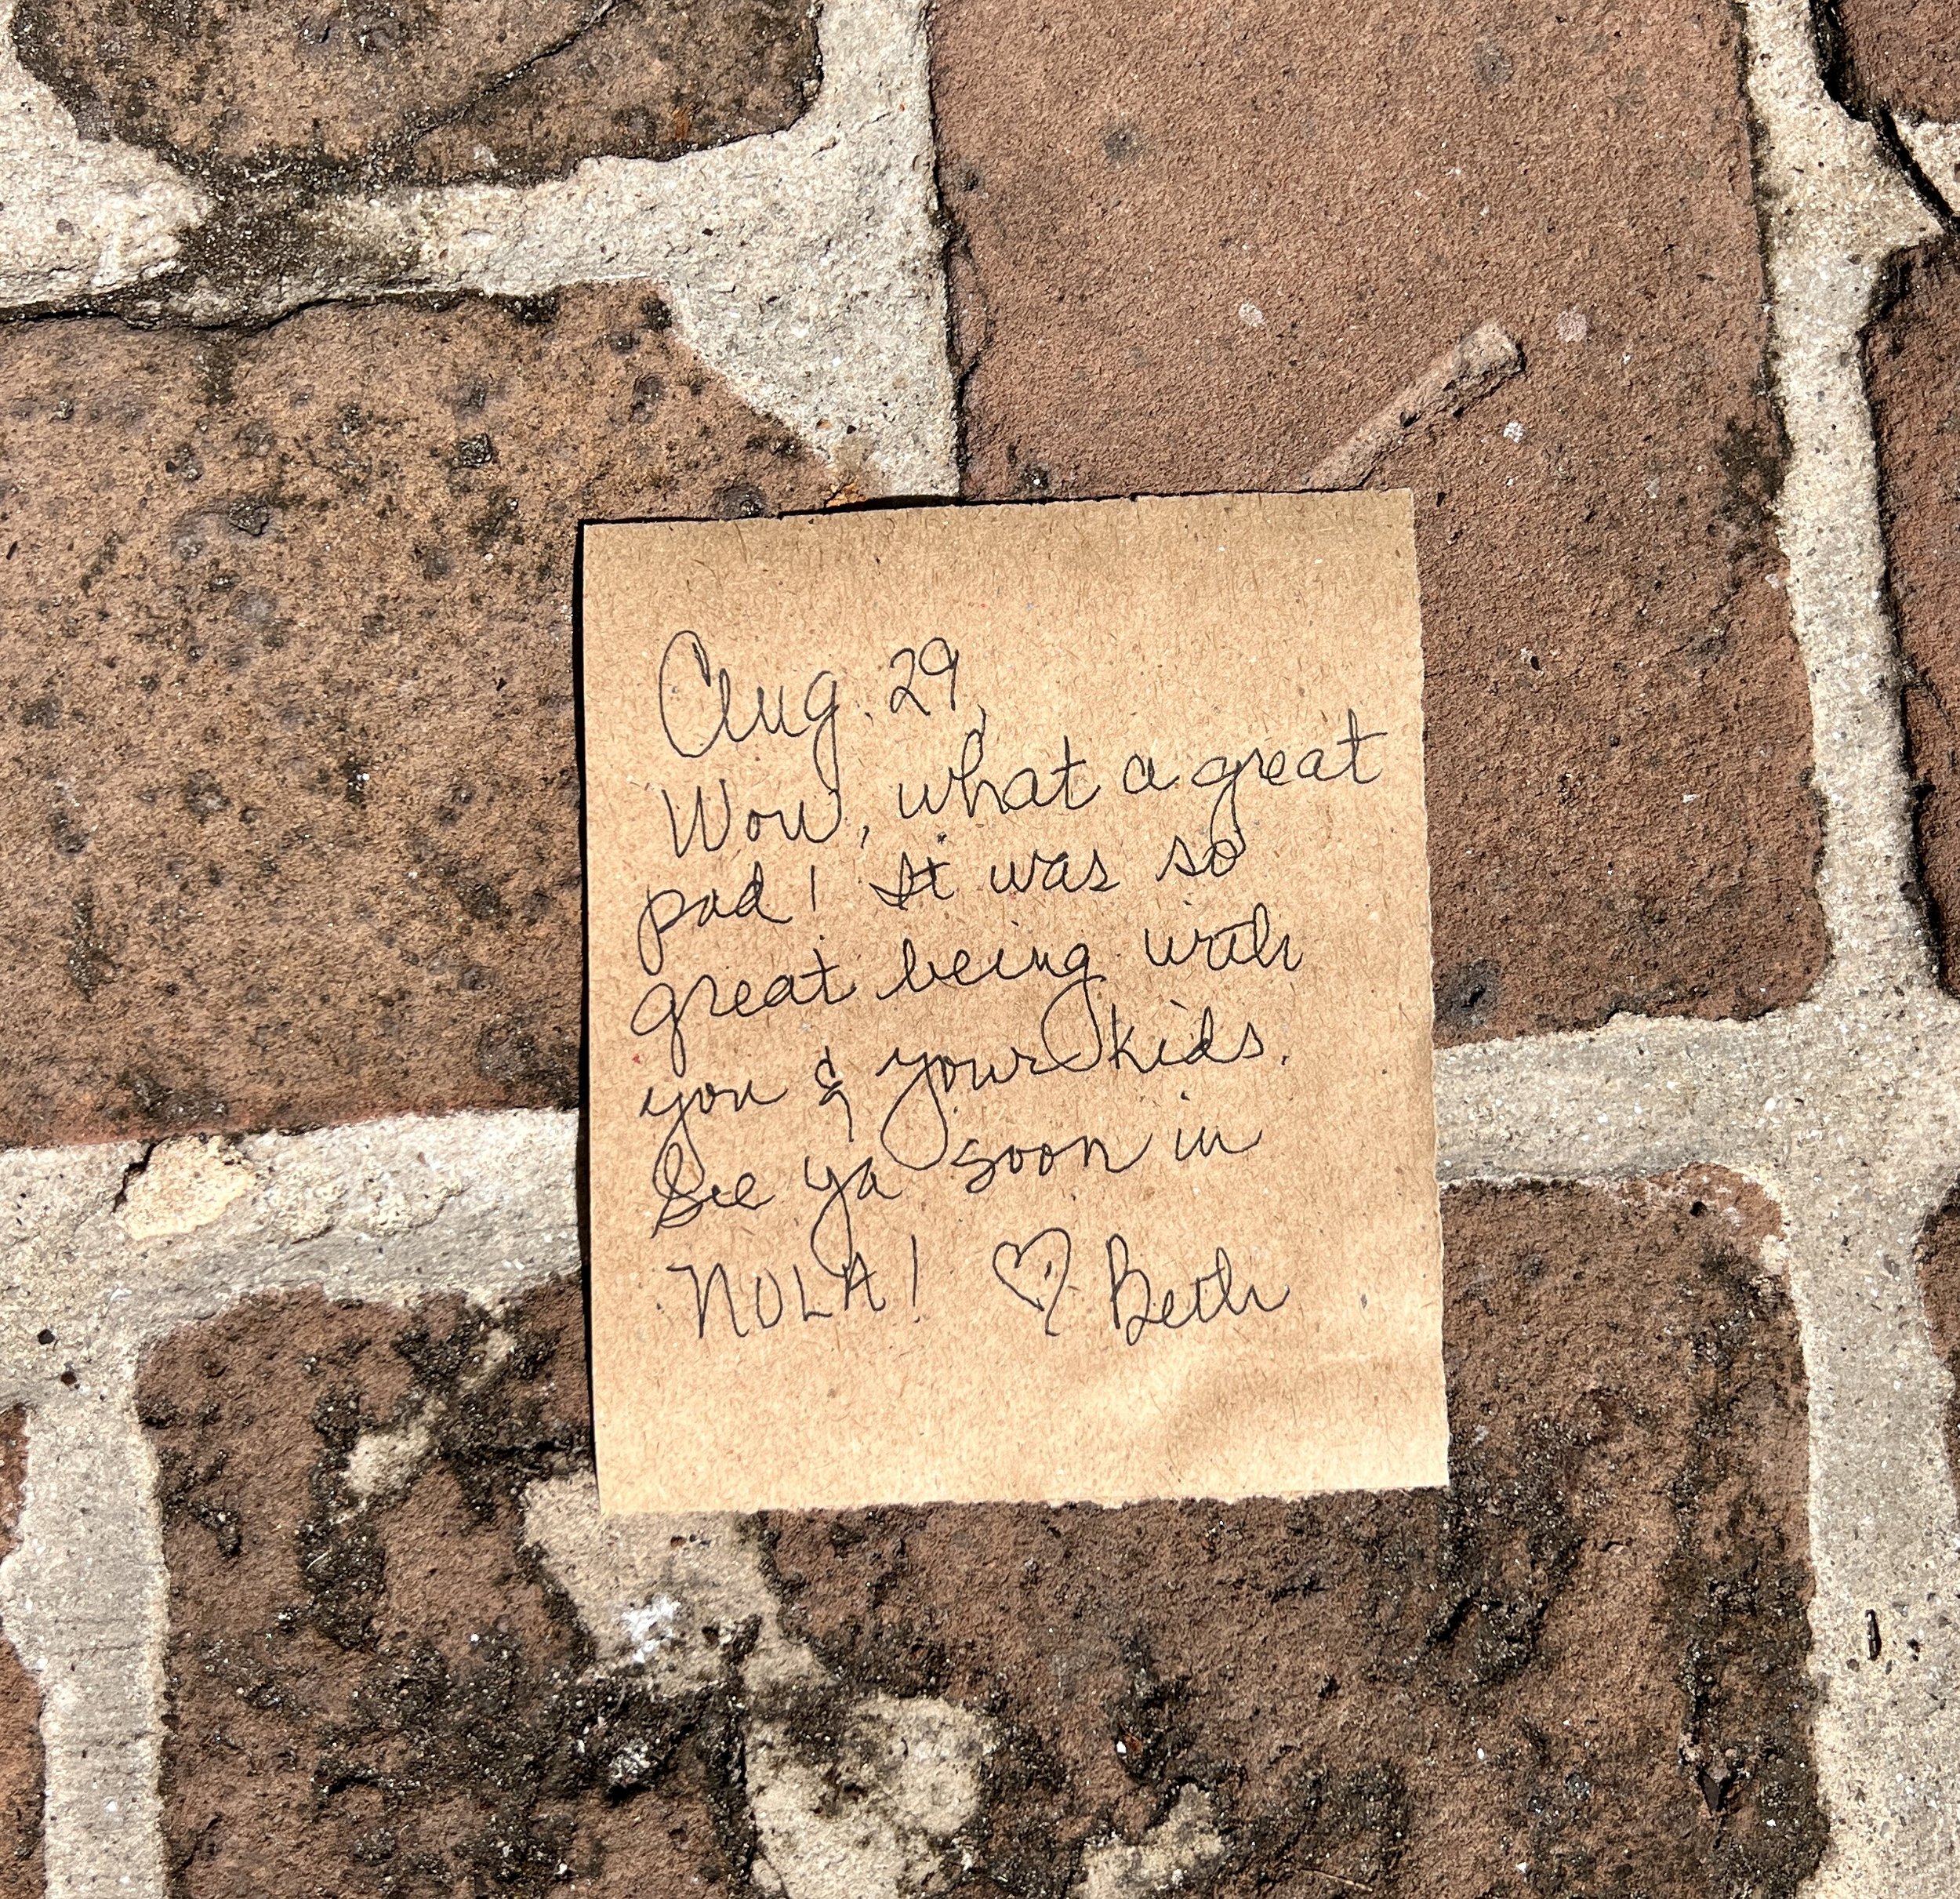 Aug. 29,
Wow, what a great
pad! It was so
great being with
you & your kids.
See ya soon in
NOLA! ♡ Beth